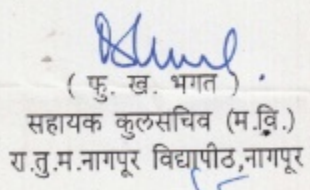 ( फु. ख. भगत )
सहायक कुलसचिव (म.वि.)
रा.तु.म.नागपूर विद्यापीठ,नागपूर